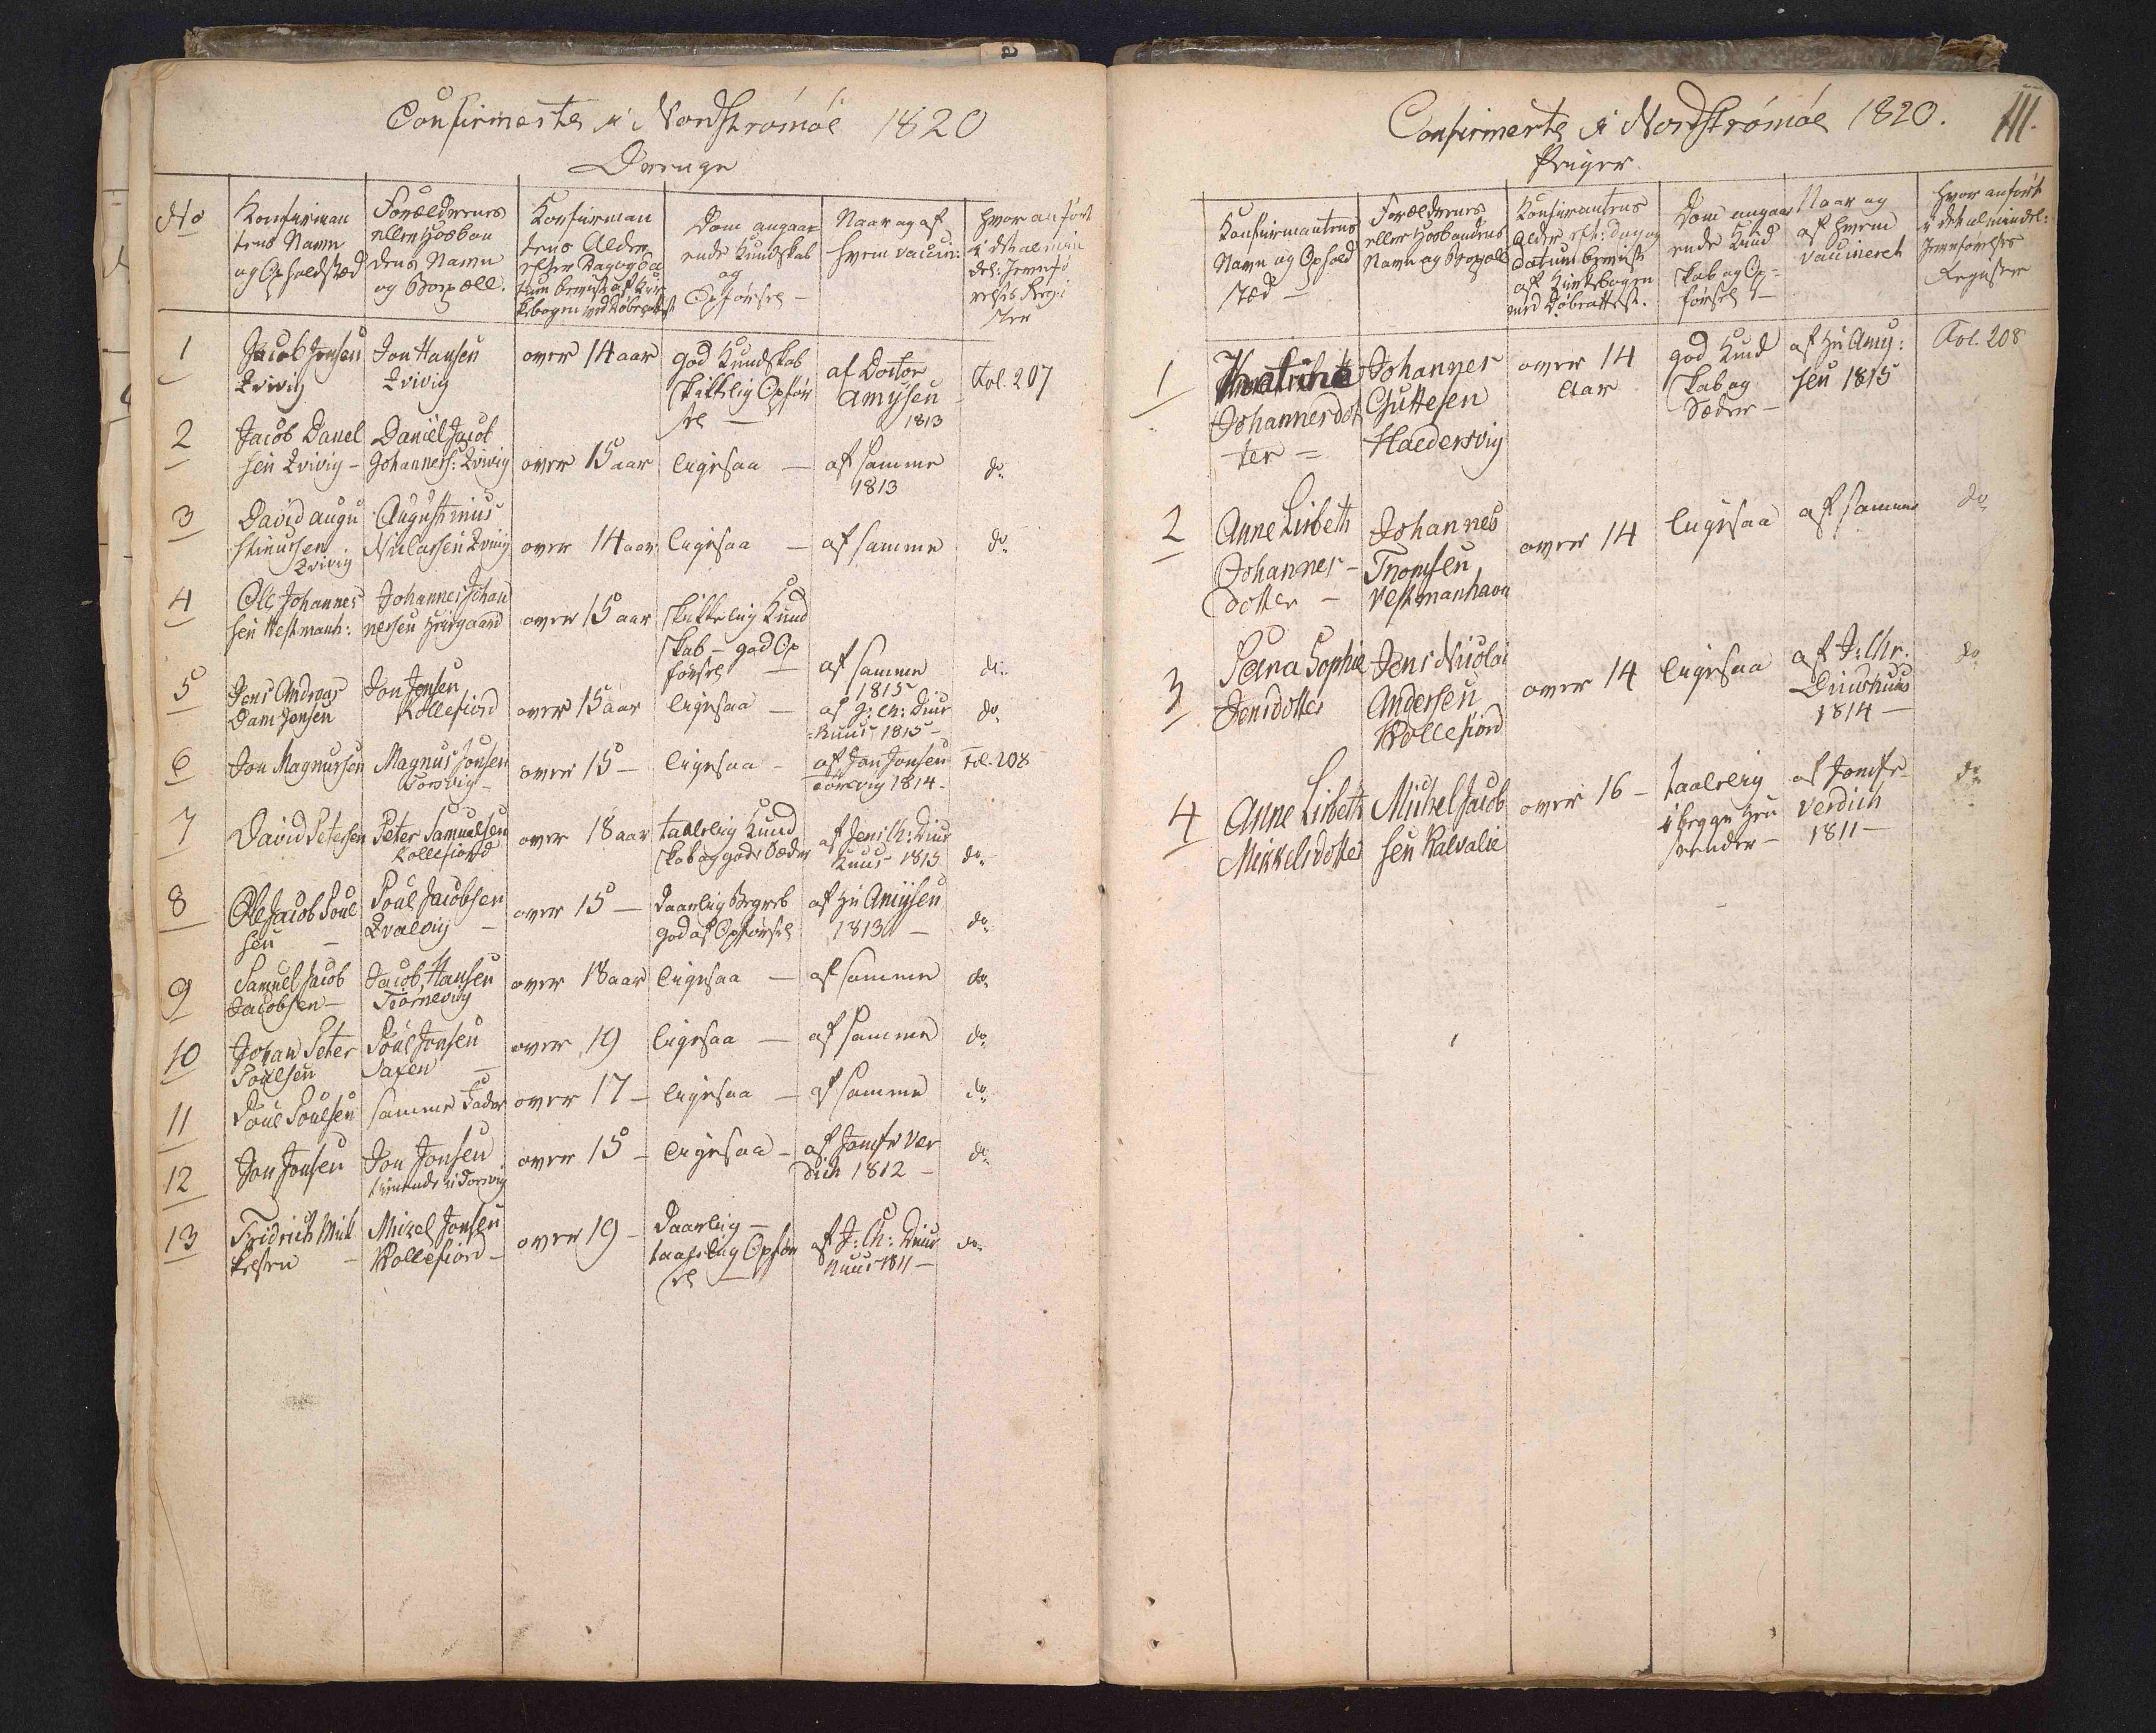 Confirmerte i Nordstrømøe 1820
Drenge
No
Konfirman
tens Navn
og Opholdsted
Forældrenes
eller Hosbon
dens Navn
og Bopæll.
Konfirman
tens Alder
efter Dag og Da
tum beviist af Kir
kebogen ved Døbeattest
Dom angaa
ende Kundskab
og
Opførsel -
Naar og af
hvem vaccin:
hvor anført
i det almin
del: Jevnfø
relses Regi
ster
1
Jacob Jonsen
Qvivig
Jon Hansen
Qvivig
over 14 aar
god Kundskab
skikkelig Opfør
sel -
af Doctor
Amysen
1813
Fol. 207
2
Jacob Danel
sen Qvivig -
Daniel Jacob
Johannes: Qvivig
over 15 aar
ligesaa -
af samme
1813
do
3
David Augu
stinussen
Qvivig
Augustinus
Niclassen Qvivig
over 14 aar
ligesaa -
af samme
do
4
Ole Johannes
sen Westmanh:
Johannes Johan
nessen
over 15 aar
skikkelig Kund
skab - god Op
førsel -
af samme
1815
do
5
Jens Andreas
Dam Jensen
Jon Jensen
Kollefiord
over 15 aar
ligesaa -
af J: Ch: Diur
huus 1815 -
do
6
Jon Magnussen
Magnus Jonsen
over 15 -
ligesaa -
af Jon Jonsen
1814 -
Fol. 208
7
David Petersen
Peter Samuelsen
Kollefiord
over 18 aar
taalelig Kund
skab og gode Sæder
af Jens Ch: Diur
huus 1815
do
8
Ole Jacob Poul
sen -
Poul Jacobsen
Qvalvig -
over 15 -
Daarlig Begreb
god af Opførsel
af Hr Amysen
1813 -
do
9
Samuel Jacob
Jacobsen -
Jacob Hansen
Tiørnevig
over 18 aar
ligesaa -
af samme
do
10
Johan Peter
Poulsen
Poul Jonsen
Saxen -
over 19
ligesaa -
af samme
do
11
Poul Poulsen
samme Fader
over 17 -
ligesaa -
af samme
do
12
Jon Jonsen
Jon Jonsen
tienende i Torsvig
over 15 -
ligesaa -
af Jomfr Ver
dich 1812 -
do
13
Fridrich Mik
kelsen -
Mikel Jonsen
Kollefiord -
over 19 -
Daarlig -
taalelig Opfør
sel -
af J: Ch: Diur
huus 1811 -
do
Confirmerte i Nordstrømøe 1820.
111.
Piger
Konfirmantens
Navn og Ophold
sted -
Forældrenes
eller Hosbondens
Navn og Bopæll
Konfirmantens
Alder eft: Dag og
Datum beviist
af Kirkebogen
med Døbeattest.
Dom angaa
ende Kund
skab og Op-
førsel -
Naar og
af hvem
vaccineret
hvor anført
i det almindel:
Jevnførelses
Register
1
Kathrine
Johannesdot
ter -
Johannes
Guttesen
Haldersvig
over 14
Aar
god Kund
skab og
Sæder -
af Hr Amy:
sen 1815
Fol. 208
2
Anne Lisbeth
Johannes -
dotter -
Johannes
Thomsen
Vestmanhavn
over 14
ligesaa
af samme
do
3
Petra Sophie
Jensdotter
Jens Nicolai
Andersen
Kollefiord
over 14
ligesaa
af J: Chr.
Diurhuus
1814 -
do
4
Anne Lisbeth
Mikkelsdotter
Michel Jacob
sen Kalvalie
over 16 -
taalelig
i begge Hen
seender -
af Jomfr
Verdich
1811 -
do